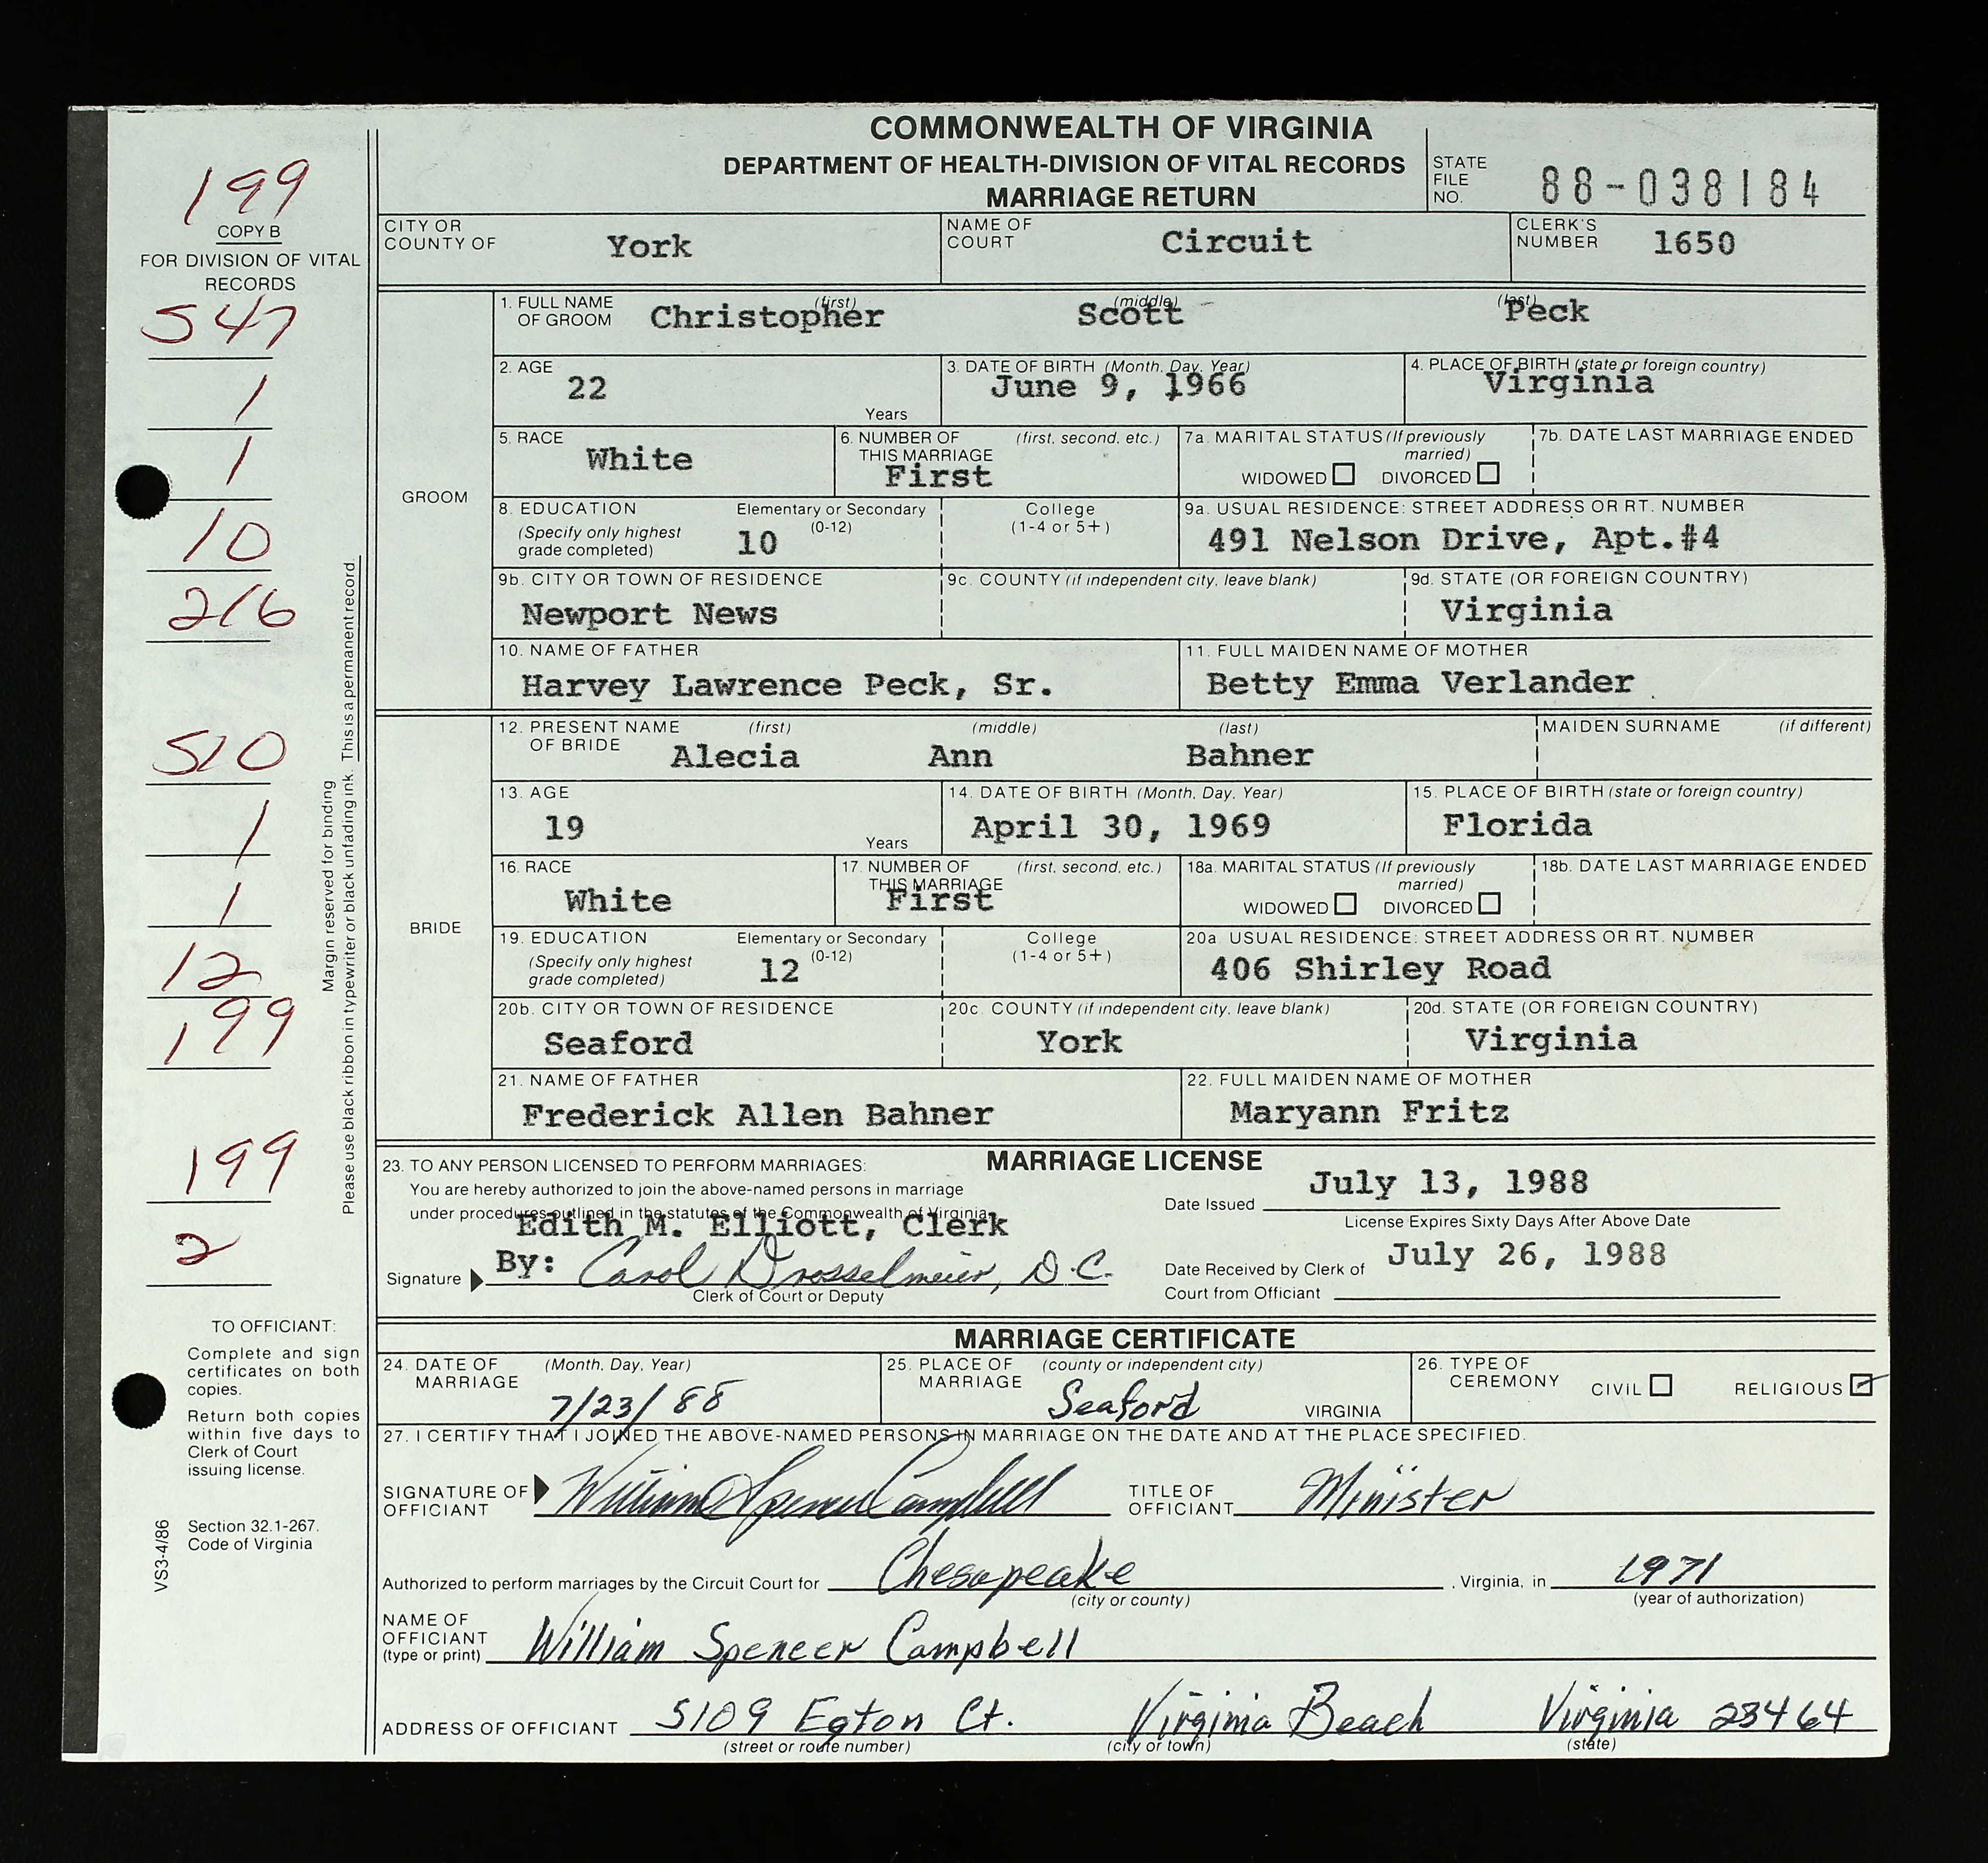 COMMONWEALTH OF VIRGINIA
DEPARTMENT OF HEALTH-DIVISION OF VITAL RECORDS
MARRIAGE RETURN
STATE FILE NO. 88-038184
CITY OR COUNTY OF York
NAME OF COURT Circuit
CLERK'S NUMBER 1650
GROOM
1. FULL NAME OF GROOM (first) Christopher (middle) Scott (last) Peck
2. AGE 22 Years
3. DATE OF BIRTH (Month, Day, Year) June 9, 1966
4. PLACE OF BIRTH (state or foreign country) Virginia
5. RACE White
6. NUMBER OF THIS MARRIAGE (first, second, etc.) First
7a. MARITAL STATUS (If previously married) WIDOWED ☐ DIVORCED ☐
7b. DATE LAST MARRIAGE ENDED
8. EDUCATION (Specify only highest grade completed) Elementary or Secondary (0-12) 10 College (1-4 or 5+)
9a. USUAL RESIDENCE: STREET ADDRESS OR RT. NUMBER 491 Nelson Drive, Apt.#4
9b. CITY OR TOWN OF RESIDENCE Newport News
9c. COUNTY (if independent city, leave blank)
9d. STATE (OR FOREIGN COUNTRY) Virginia
10. NAME OF FATHER Harvey Lawrence Peck, Sr.
11. FULL MAIDEN NAME OF MOTHER Betty Emma Verlander
BRIDE
12. PRESENT NAME OF BRIDE (first) Alecia (middle) Ann (last) Bahner
MAIDEN SURNAME (if different)
13. AGE 19 Years
14. DATE OF BIRTH (Month, Day, Year) April 30, 1969
15. PLACE OF BIRTH (state or foreign country) Florida
16. RACE White
17. NUMBER OF THIS MARRIAGE (first, second, etc.) First
18a. MARITAL STATUS (If previously married) WIDOWED ☐ DIVORCED ☐
18b. DATE LAST MARRIAGE ENDED
19. EDUCATION (Specify only highest grade completed) Elementary or Secondary (0-12) 12 College (1-4 or 5+)
20a. USUAL RESIDENCE: STREET ADDRESS OR RT. NUMBER 406 Shirley Road
20b. CITY OR TOWN OF RESIDENCE Seaford
20c. COUNTY (if independent city, leave blank) York
20d. STATE (OR FOREIGN COUNTRY) Virginia
21. NAME OF FATHER Frederick Allen Bahner
22. FULL MAIDEN NAME OF MOTHER Maryann Fritz
MARRIAGE LICENSE
23. TO ANY PERSON LICENSED TO PERFORM MARRIAGES:
You are hereby authorized to join the above-named persons in marriage
under procedures outlined in the statutes of the Commonwealth of Virginia.
Edith M. Elliott, Clerk
Signature By: Carol Drosselmeier, D.C.
Clerk of Court or Deputy
Date Issued July 13, 1988
License Expires Sixty Days After Above Date
Date Received by Clerk of Court from Officiant July 26, 1988
MARRIAGE CERTIFICATE
24. DATE OF MARRIAGE (Month, Day, Year) 7/23/88
25. PLACE OF MARRIAGE (county or independent city) Seaford VIRGINIA
26. TYPE OF CEREMONY CIVIL ☐ RELIGIOUS ☑
27. I CERTIFY THAT I JOINED THE ABOVE-NAMED PERSONS IN MARRIAGE ON THE DATE AND AT THE PLACE SPECIFIED.
SIGNATURE OF OFFICIANT William Spencer Campbell
TITLE OF OFFICIANT Minister
Authorized to perform marriages by the Circuit Court for Chesapeake, Virginia, in 1971
(city or county) (year of authorization)
NAME OF OFFICIANT (type or print) William Spencer Campbell
ADDRESS OF OFFICIANT 5109 Egton Ct. Virginia Beach Virginia 23464
(street or route number) (city or town) (state)
199
COPY B
FOR DIVISION OF VITAL
RECORDS
547
1
1
10
216
510
1
1
12
199
199
2
Margin reserved for binding
Please use black ribbon in typewriter or black unfading ink. This is a permanent record.
TO OFFICIANT:
Complete and sign
certificates on both
copies.
Return both copies
within five days to
Clerk of Court
issuing license.
Section 32.1-267.
Code of Virginia
VS3-4/86